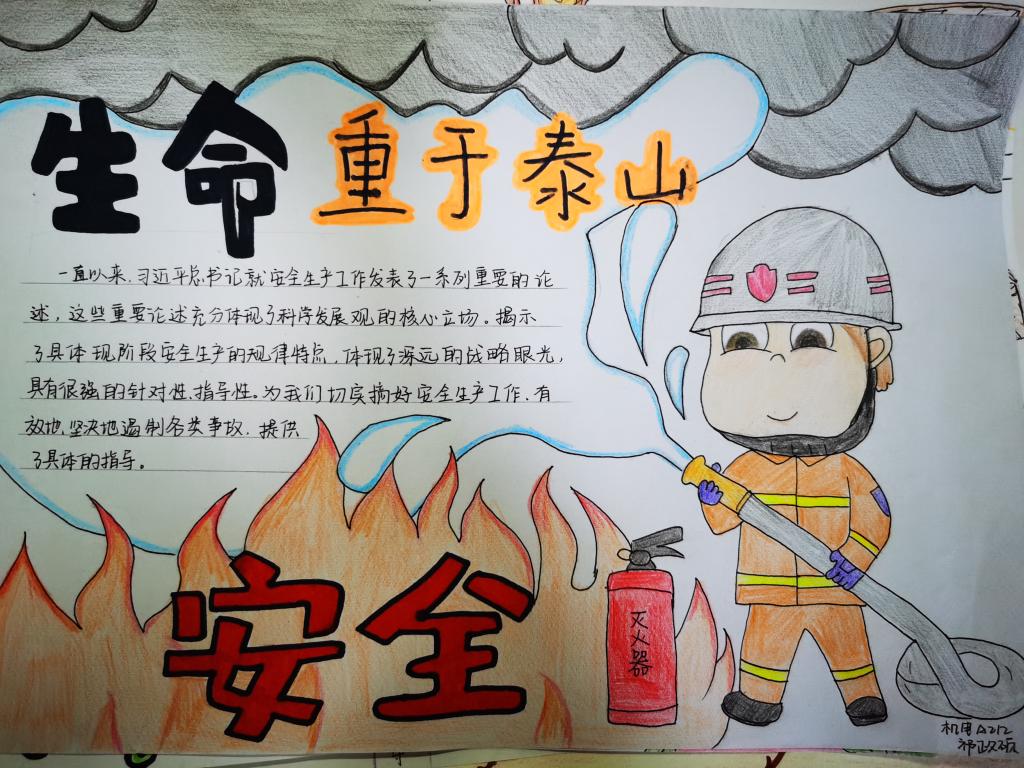 生命重于泰山
一直以来,习近平总书记就安全生产工作发表了一系列重要的论
述,这些重要论述充分体现了科学发展观的核心立场。揭示
了具体现阶段安全生产的规律特点,体现了深远的战略眼光,
具有很强的针对性、指导性。为我们切实搞好安全生产工作、有
效地、坚决地遏制各类事故,提供
了具体的指导。
安全
灭火器
机电A212